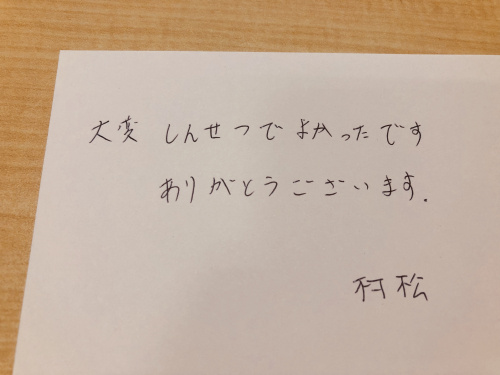 大変 しんせつで よかったです
ありがとうございます.
村松